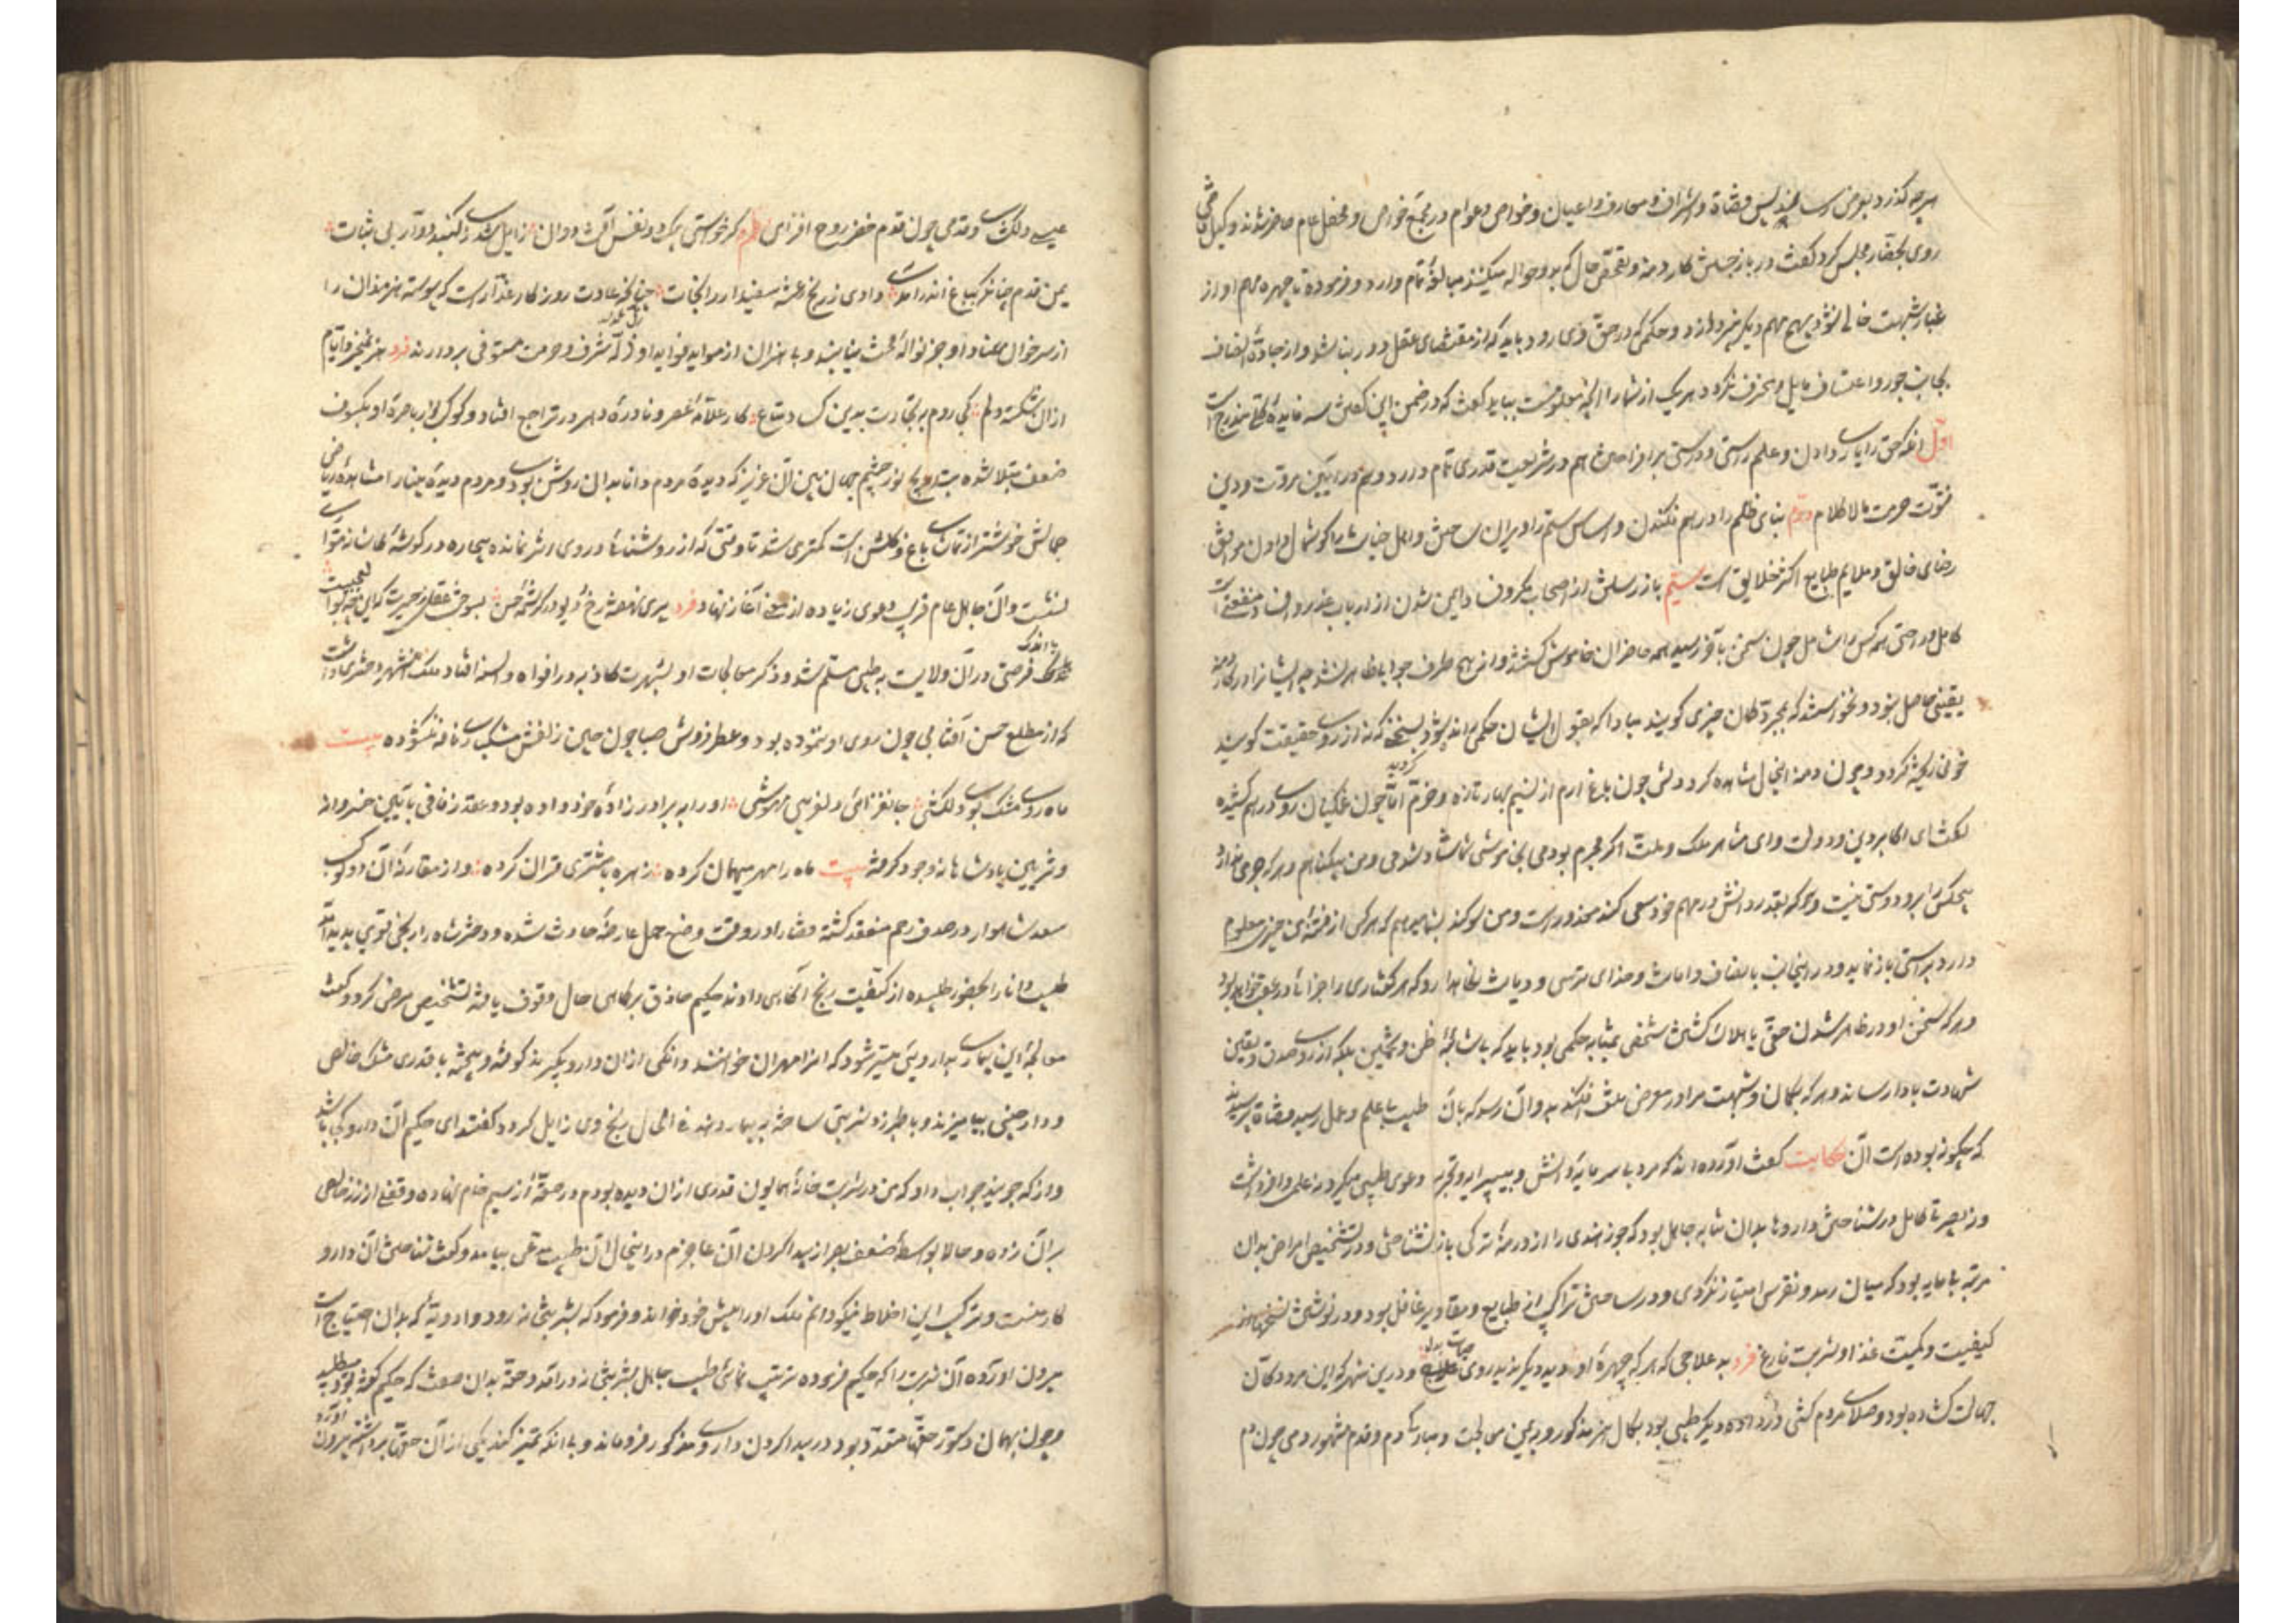 هر چه گذرد بعرض رساند پس قضاة و اشراف و معارف و اعیان و خواص و عوام در مجمع خواص و محفل عام حاضر شدند وکیل قاضی
روی بحضار مجلس کرد و گفت در باز جستن کار دمنه و تفحص حال که بدو حواله میکنند مبالغهٔ تمام دارد و فرموده تا چهره مهم او از
غبار شبهت خالی نشود بهیچ مهم دیگر نپردازند و حکمی که در حق وی رود باید که از مقتضای عقل دور نباشد و از جادهٔ انصاف
بجانب جور و اعتساف مایل و منحرف نگردد هر یک از شما را آنچه معلومست بباید گفت که در ضمن این گفتن سه فایدهٔ کلی مندرج است
اول آنکه حق را یاری دادن و علم راستی و درستی برافراختن هم در شریعت قدری تمام دارد و هم در آیین مروت و دین
فتوت حرمت مالاکلام دوم بنای ظلم را درهم فکندن و اساس ستم را ویران ساختن و اهل خیانت را گوشمال دادن موافق
رضای خالق و ملایم طبایع اکثر خلایق است سیم باز رستن از اصحاب مکر و فساد و ایمن شدن از ارباب غدر و افساد منفعتی است
کامل و راحتی همه کس را شامل چون سخن بآخر رسید همه حاضران خاموش گشتند و از هیچ طرف جوابی ظاهر نشد چه ایشان را در کار دمنه
یقینی حاصل نبود و نخواستند که بمجرد گمان چیزی گویند مبادا که بقول ایشان حکمی رانده شود و بسخنی که نه از روی حقیقت گویند
خونی ریخته گردد و چون دمنه این حال مشاهده کرد دلش چون باغ ارم از نسیم بهار تازه و خرم گردید اما چون غمگینان روی درهم کشیده
گفت ای اکابر دین و دولت و ای مشاهیر ملک و ملت اگر مجرم بودمی بخاموشی شما شاد شدمی و من بیگناهم و هر که جرمی ندارد
هیچکس را برو دستی نیست و هر که بقدر دانش در مهم خود سعی کند معذور است و من سوگند بشما میدهم که هر کس از قصهٔ من چیزی معلوم
دارد براستی باز نماید و در این جانب با انصاف و امانت و خدای ترسی و دیانت نگاه دارد که هر گفتاری را جزائی در عقب خواهد بود
و هر که سخن او در ظاهر شدن حق یا هلاک گشتن شخصی بمثابه حکمی بود باید که بی شائبهٔ ظن و تخمین بلکه از روی صدق و یقین
شهادت بادا رساند و هر که بگمان و شبهت مرا در معرض تلف افکند بدو آن رسد که بآن طبیب بی علم و عمل رسید قضاة پرسیدند
که چگونه بوده است آن حکایت گفت آورده اند که مردی بی سرمایهٔ دانش و بی پیرایه تجربه دعوی طبیبی میکرد نه علمی وافر داشت
و نه بصیرتی کامل در شناختن داروها بدان مثابه جاهل بود که جوز هندی را از درمنهٔ ترکی باز نشناختی و در تشخیص امراض بدان
مرتبه بی مایه بود که میان رمد و نقرس امتیاز نکردی و در ساختن تراکیب از طبایع و مقادیر غافل بود و در نوشتن نسخها از
کیفیت و کمیت غذا و شربت فارغ فرد بد علاجی که هر که چهرهٔ او دید دیگر ندید روی حیات و درین شهر که این مرد دکان
جهالت گشاده بود و صلای مردم کشی در داده دیگر طبیبی بود بکمال هنر مذکور و بیمن معالجت و مبارکی دم و قدم مشهور دمی چون دم
عیسی دلکشای و قدمی چون قدم خضر روح افزای قطعه گر خواستی بیک دو نفس آفت دوان زایل شدی ز گنبد دوار بی ثبات
یمن قدم چنانکه بباغ اندر آمدی دادی ز رنج رعشه سفیدار را نجات چنانکه عادت روزگار غدار است که پیوسته هنرمندان را
از سر خوان مقصود او جز نوالهٔ محنت نیابند و بی هنران از مواید فواید او زلهٔ شرف و حرمت مستوفی بردارند فرد هنر نمیخرد ایام
از آن شکسته دلم کجا روم بتجارت بدین کساد متاع کار علامهٔ عصر و نادرهٔ دهر در تراجع افتاد و کوکب نور باصرهٔ او بکسوف
ضعف مبتلا شده بتدریج نور چشم جهان بین آن عزیز که دیدهٔ مردم دانا بدان روشن بودی و مردم دیدهٔ بینا را مشاهدهٔ ریاض
جمالش خوشتر از تماشای باغ و گلشن است کمتر می شد تا وقتی که از روشنائی در وی اثر نمانده بیچاره در گوشهٔ کاشانه متواری
بنشست و آن جاهل عام فریب دعوی زیاده از سخن آغاز نهاد فرد پری نهفته رخ و دیو در کرشمهٔ حسن بسوخت عقل ز حیرت که این چه بوالعجبیست
باندک فرصتی در آن ولایت به طبیبی مسلم شد و ذکر معالجات او بشهرت کاذبه در افواه و السنه افتاد ملک آن شهر دختری داشت
که از مطلع حسن آفتابی چون روی او ننموده بود و عطر فروش صبا چون چین زلفش مشکساى نافه نگشوده بیت
ماه روی مشک بوی دلکشی جانفزائی دلفریبی مهوشی او را به برادر زادهٔ خود داده بود و عقد زفافی بآیین خسروانه
و تزیین پادشاهانه وجود گرفته بیت ماه را مهر میهمان کرده زهره با مشتری قران کرده و از مقارنهٔ آن دو کوکب
سعد شاهوار در صدف رحم منعقد گشته قضا را در وقت وضع حمل عارضهٔ حادث شده و دختر شاه را رنجی قوی پدید آمد
طبیب دانا را بحضور طلبیده از کیفیت رنج آگاهی دادند حکیم حاذق بر کماهی حال وقوف یافته تشخیص مرض کرد و گفت
معالجهٔ این بیماری بداروئی میسر شود که آنرا مهران خوانند دانگی از آن دارو بگیرند کوفته و بیخته با قدری مشک خالص
و دارچینی بیامیزند و با طبرزد شربتی ساخته به بیمار دهند فی الحال رنج وی زایل گردد گفتند ای حکیم آن دارو کجا باشد
و از که جویند جواب داد که من در شربت خانهٔ همایون قدری از آن دیده بودم در حقهٔ از سیم خام نهاده و قفلی از زر خالص
بر آن زده و حالا بواسطهٔ ضعف بصر از پیدا کردن آن عاجزم در این حال آن طبیب مدعی بیامد و گفت شناختن آن دارو
کار منست و ترکیب این اخلاط نیکو دانم ملک او را پیش خود خواند و فرمود که بشربتخانه رود و ادویهٔ که بدان احتیاج است
بیرون آورده آن شربت را که حکیم فرموده ترتیب نمائی طبیب جاهل بشربتخانه در آمد و حقهٔ بدان صفت که حکیم گفته بود میطلبید
و چون بهمان دستور حقها متعدد بود در پیدا کردن داروی مذکور فرو ماند و بی آنکه تمییز کند یکی از آن حقها برداشته بیرون آورد